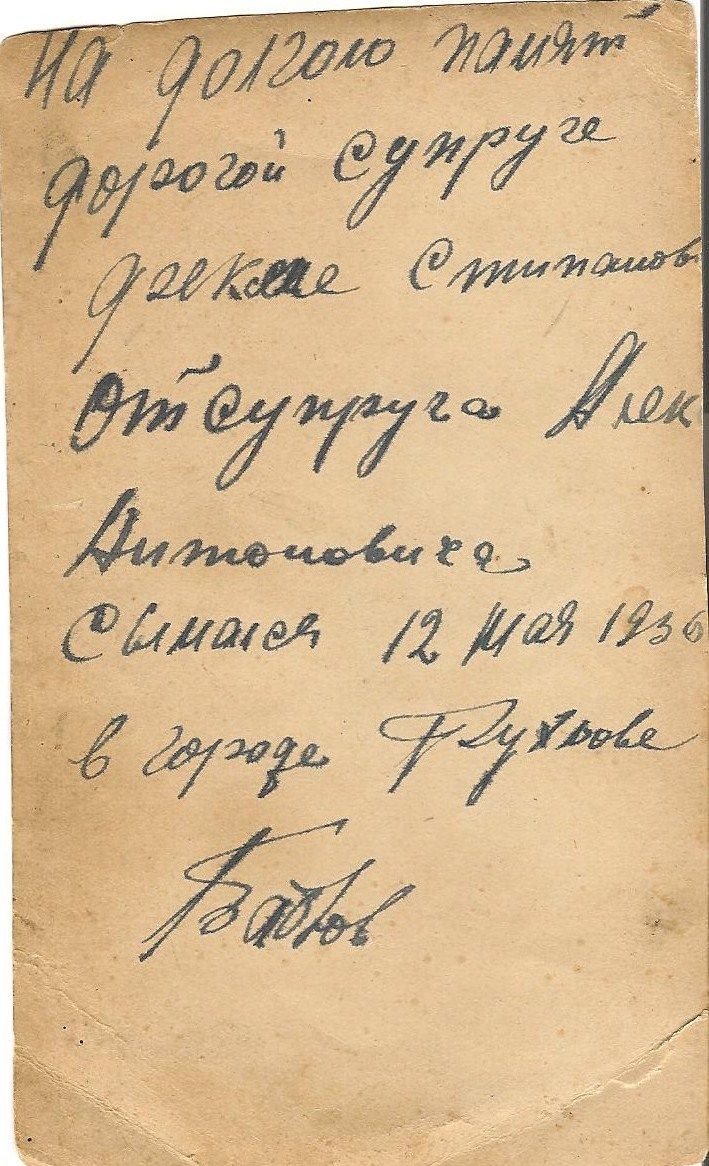 На долгою памят
дорогой супруге
Фекле Стипанов
От супруга Алек
Антоновича
Сымался 12 мая 193
в городе Рухлове